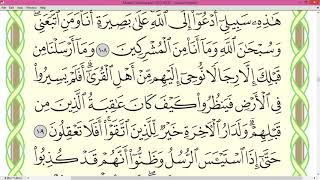 هَٰذِهِۦ سَبِيلِىٓ أَدْعُوٓا۟ إِلَى ٱللَّهِ عَلَىٰ بَصِيرَةٍ أَنَا۠ وَمَنِ ٱتَّبَعَنِى
وَسُبْحَٰنَ ٱللَّهِ وَمَآ أَنَا۠ مِنَ ٱلْمُشْرِكِينَ ١٠٨ وَمَآ أَرْسَلْنَا مِن
قَبْلِكَ إِلَّا رِجَالًا نُّوحِىٓ إِلَيْهِم مِّنْ أَهْلِ ٱلْقُرَىٰٓ أَفَلَمْ يَسِيرُوا۟
فِى ٱلْأَرْضِ فَيَنظُرُوا۟ كَيْفَ كَانَ عَٰقِبَةُ ٱلَّذِينَ مِن
قَبْلِهِمْ وَلَدَارُ ٱلْءَاخِرَةِ خَيْرٌ لِّلَّذِينَ ٱتَّقَوْا۟ أَفَلَا تَعْقِلُونَ ١٠٩
حَتَّىٰٓ إِذَا ٱسْتَيْـَٔسَ ٱلرُّسُلُ وَظَنُّوٓا۟ أَنَّهُمْ قَدْ كُذِبُوا۟